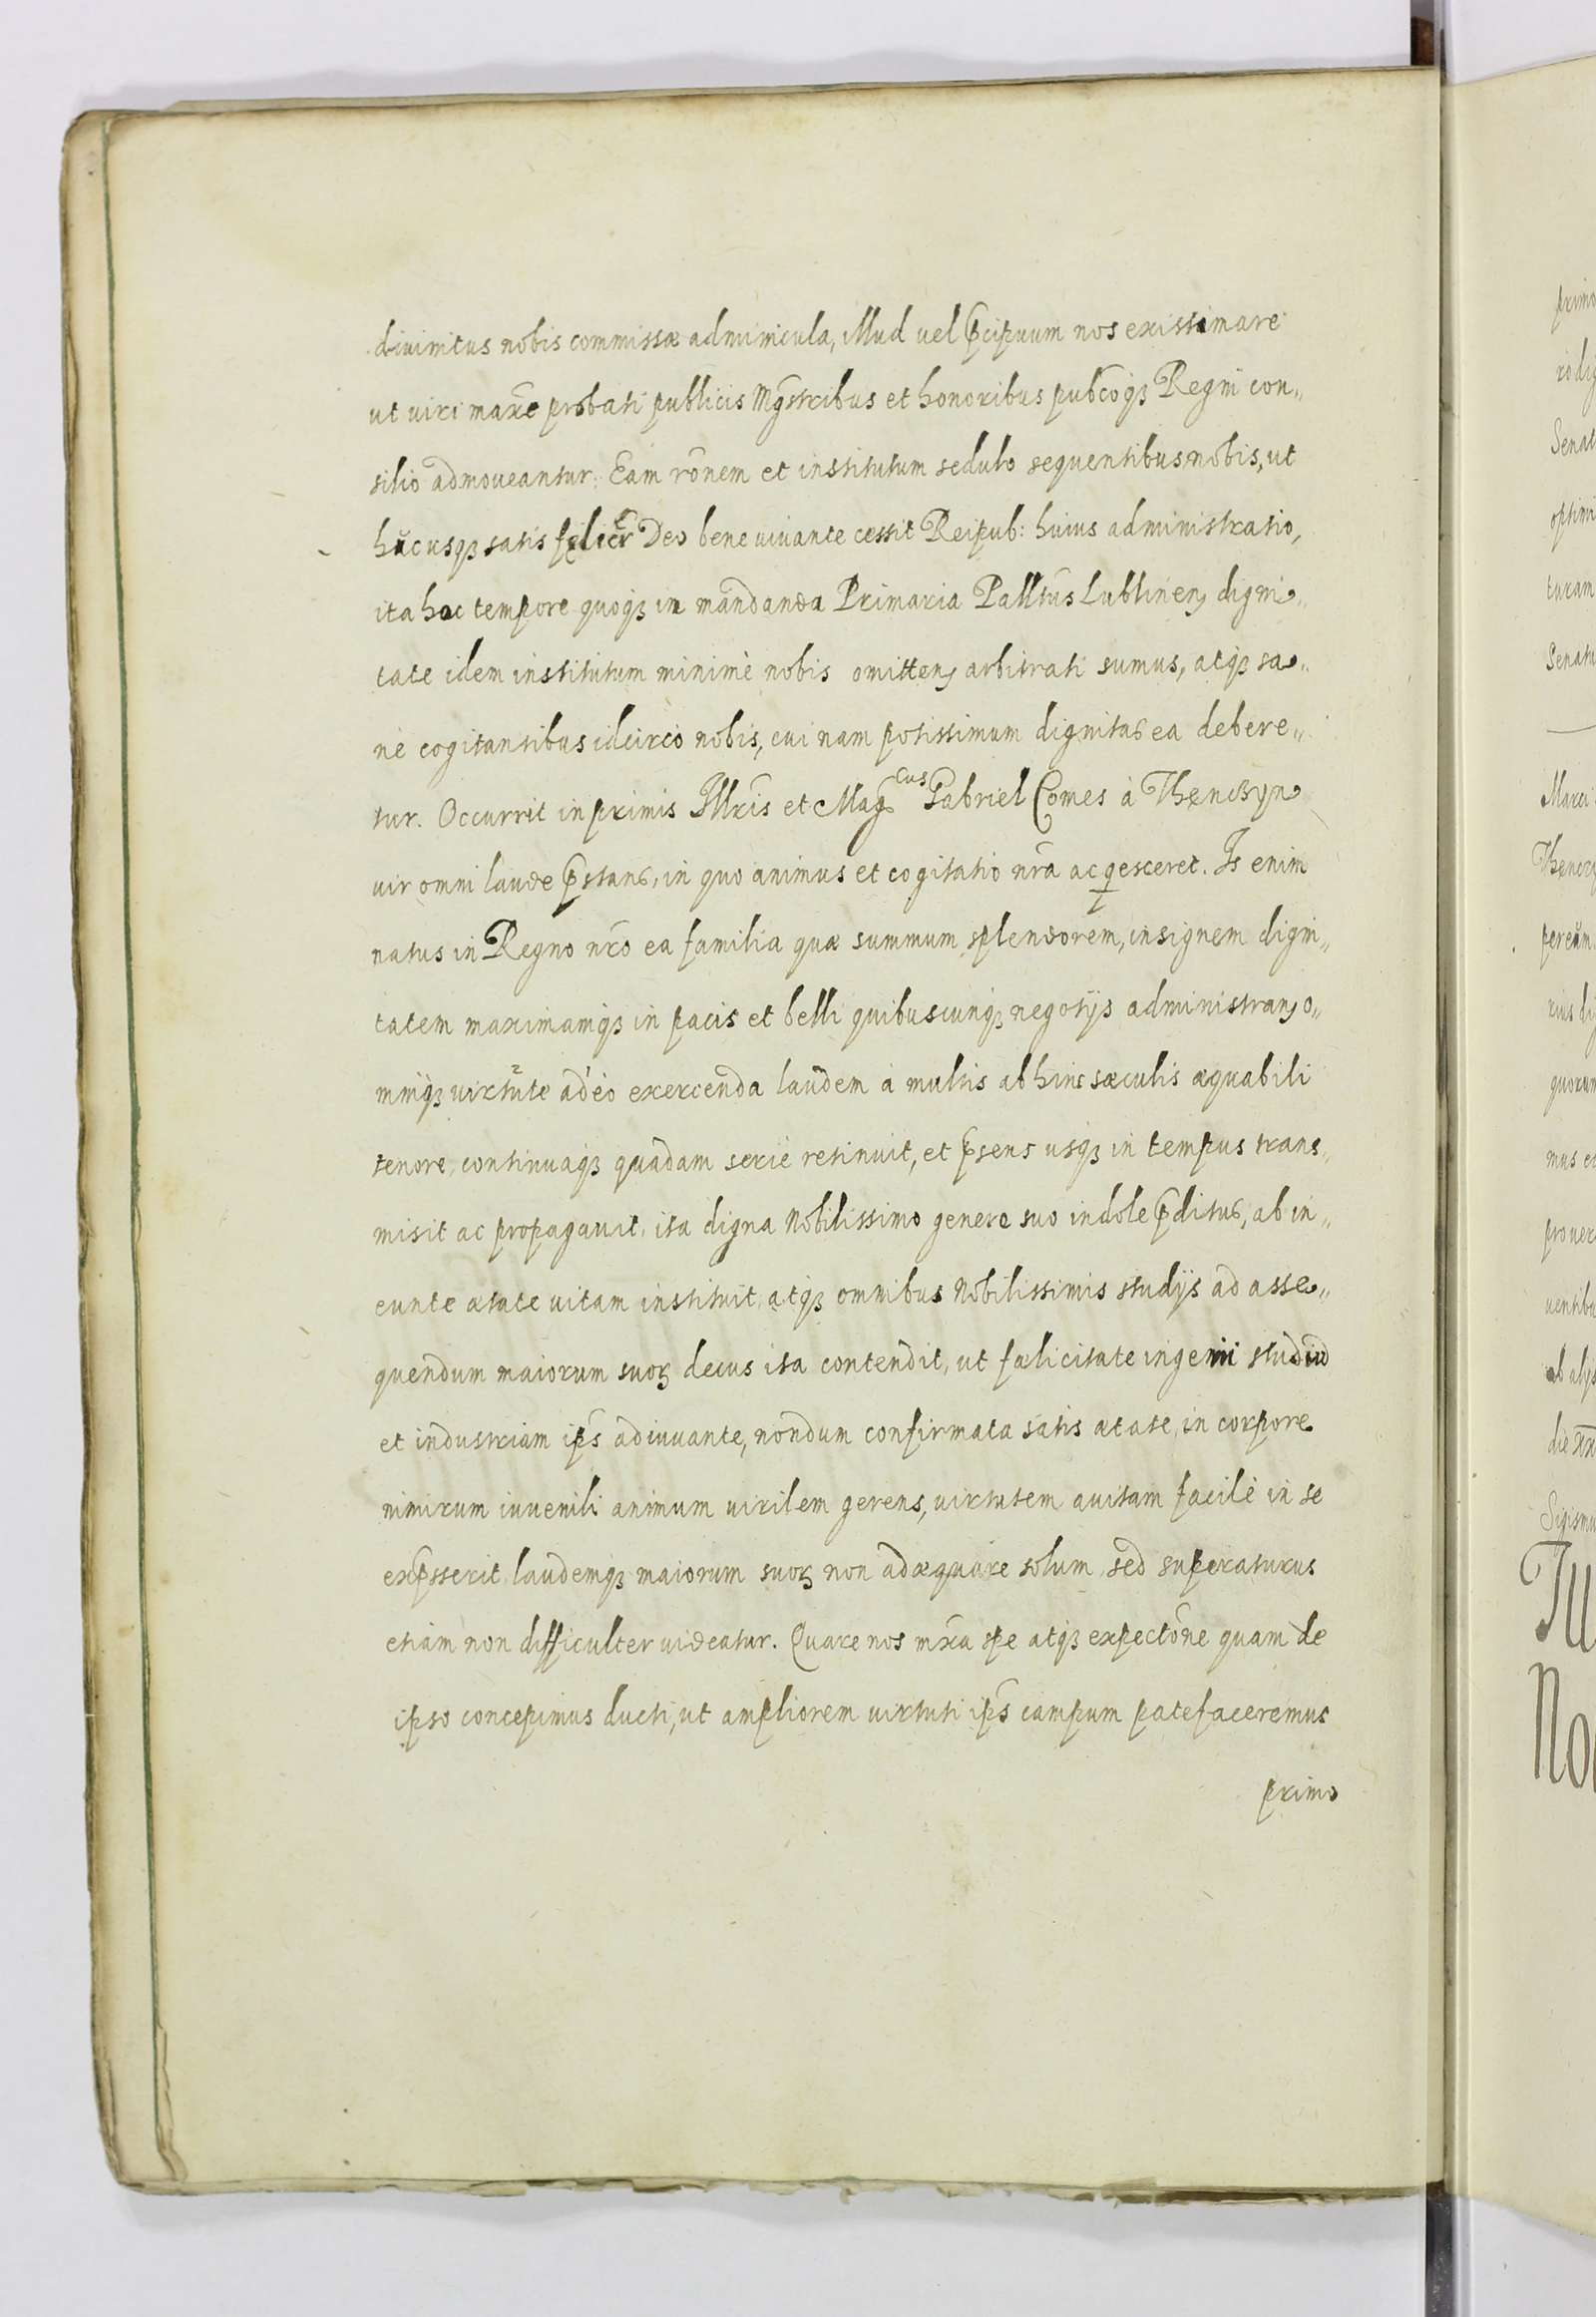 divinitus nobis commissæ adminicula, illud uel p̃cipuum nos existimare
ut uiri maxẽ probati publicis Mg̃stribus et honoribus pubcoq₃ Regni con„
silio admoueantur. Eam rõnem et institutum sedulo sequentibus nobis, ut
hucusq₃ satis fęlicr̃ Deo bene iuuante cessit Reipub: huius administratio,
ita hoc tempore quoq₃ in mandanda Primaria Pallt̃us Lublinen, digni„
tate idem institutum minimè nobis omitten, arbitrati sumus, atq₃ sa„
nè cogitantibus idcircò nobis, cui nam potissimum dignitas ea debere„
tur. Occurrit inprimis Illr̃is et Mag̃cus Gabriel Comes à Thenczyn
uir omni laude p̃stans, in quo animus et cogitatio nr̃a acqesceret. Is enim
natus in Regno nr̃o ea familia quæ summum splendorem, insignem digni„
tatem maximamq₃ in pacis et belli quibuscunq₃ negotijs administran, o„
mniq₃ uirtute adeò exercenda laudem à multis ab hinc sæculis æquabili
tenore, continuaq₃ quadam serie retinuit, et p̃sens usq₃ in tempus trans„
misit ac propagauit, ita digna Nobilissimo genere suo indole p̃ditus, ab in„
eunte ætate uitam instituit, atq₃ omnibus Nobilissimis studijs ad asse„
quendum maiorum suoꝝ decus ita contendit, ut fœlicitate ingenii studiũ
et industriam ip̃s adiuuante, nondum confirmata satis ætate, in corpore
nimirum iuuenili animum uirilem gerens, uirtutem auitam facilè in se
exp̃sserit, laudemq₃ maiorum suoꝝ non adæquare solum, sed superaturus
etiam non difficulter uideatur. Quare nos mr̃a spe atq₃ expectõne quam de
ipso concepimus ducti, ut ampliorem uirtuti ip̃s campum patefaceremus
primo